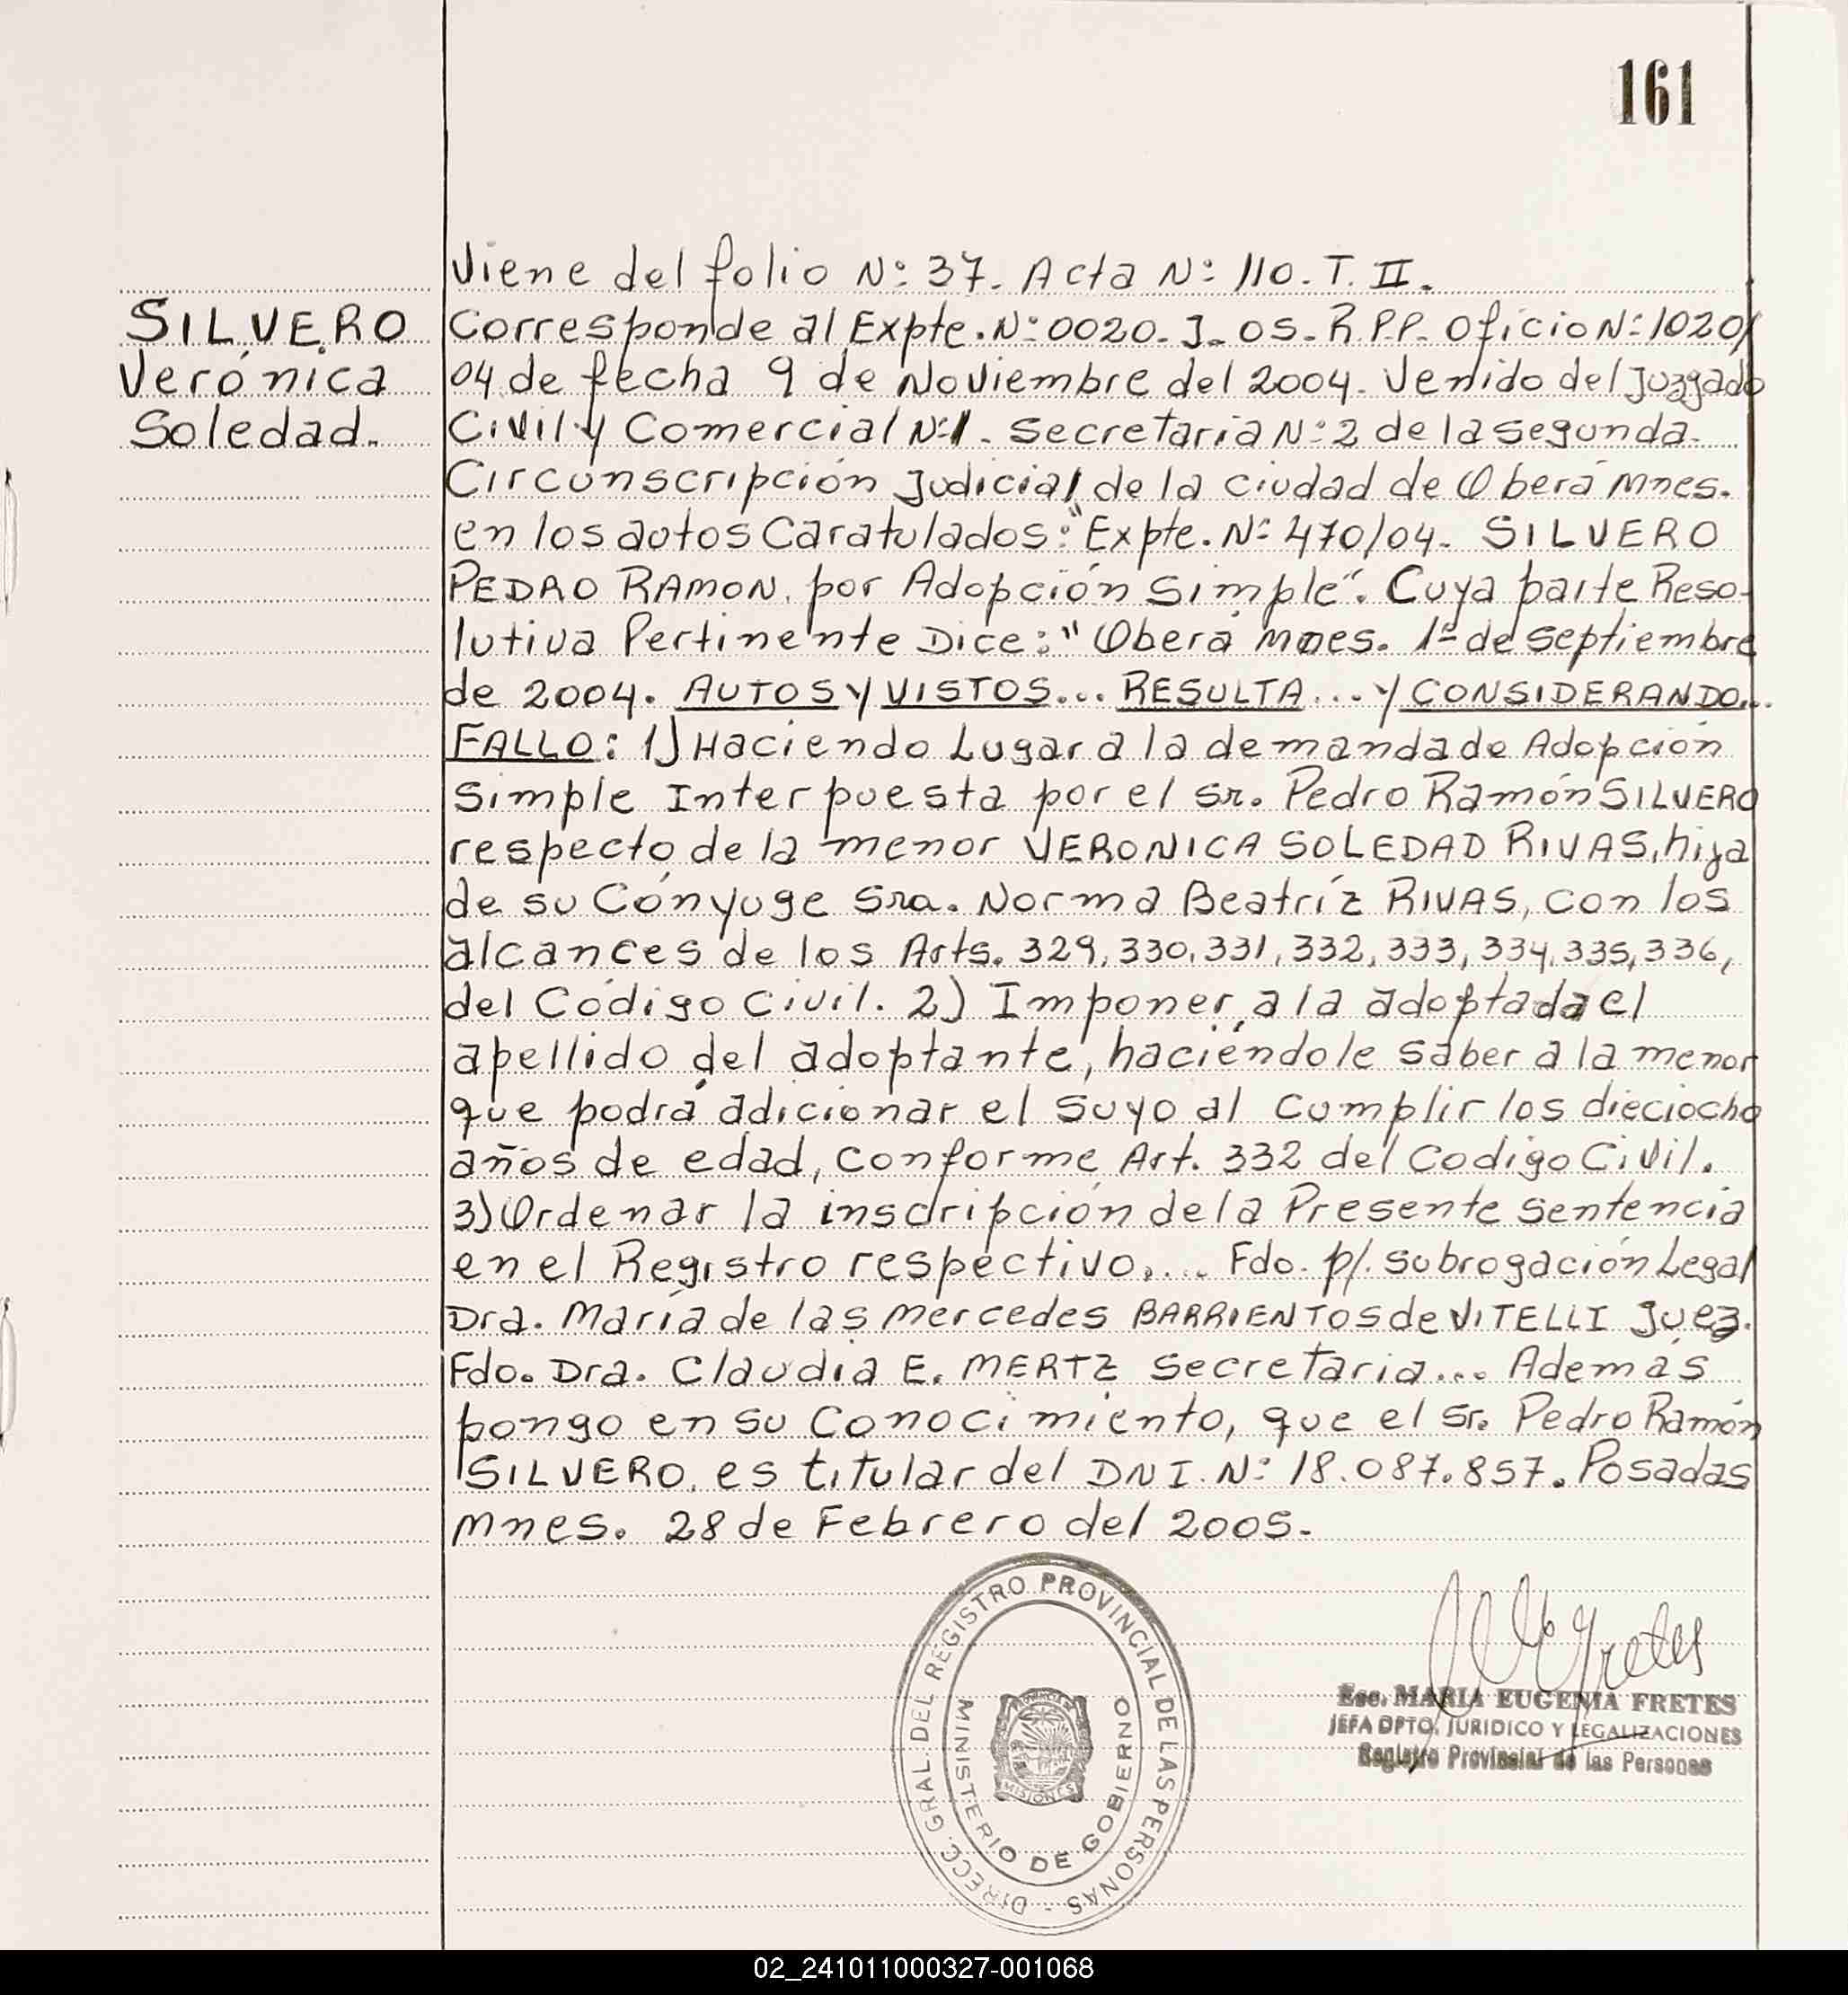 161
Viene del folio Nº 37. Acta Nº 110. T. II.
SILVERO
Verónica
Soledad.
Corresponde al Expte. Nº 0020-J-05-R.P.P. Oficio Nº 1020/
04 de fecha 9 de Noviembre del 2004. Venido del Juzgado
Civil y Comercial Nº 1. Secretaria Nº 2 de la segunda
Circunscripción Judicial de la ciudad de Oberá Mnes.
en los autos Caratulados: "Expte. Nº 470/04- SILVERO
PEDRO RAMON, por Adopción Simple". Cuya parte Reso-
lutiva Pertinente Dice: "Oberá Mnes. 1º de septiembre
de 2004. AUTOS y VISTOS... RESULTA... y CONSIDERANDO...
FALLO: 1) Haciendo Lugar a la demanda de Adopción
Simple Interpuesta por el Sr. Pedro Ramón SILVERO
respecto de la menor VERONICA SOLEDAD RIVAS, hija
de su Cónyuge Sra. Norma Beatríz RIVAS, con los
alcances de los Arts. 329, 330, 331, 332, 333, 334, 335, 336,
del Código Civil. 2) Imponer a la adoptada el
apellido del adoptante, haciéndole saber a la menor
que podrá adicionar el suyo al cumplir los dieciocho
años de edad, conforme Art. 332 del Codigo Civil.
3) Ordenar la inscripción de la Presente Sentencia
en el Registro respectivo,... Fdo. p/. subrogación Legal
Dra. María de las Mercedes BARRIENTOS de VITELLI Juez.
Fdo. Dra. Claudia E. MERTZ Secretaria... Además
pongo en su Conocimiento, que el Sr. Pedro Ramón
SILVERO, es titular del DNI. Nº 18.087.857. Posadas
Mnes. 28 de Febrero del 2005.
DIRECC. GRAL. DEL REGISTRO PROVINCIAL DE LAS PERSONAS -
MINISTERIO DE GOBIERNO
PROVINCIA DE
MISIONES
Fretes
Esc. MARIA EUGENIA FRETES
JEFA DPTO. JURIDICO Y LEGALIZACIONES
Registro Provincial de las Personas
02_241011000327-001068